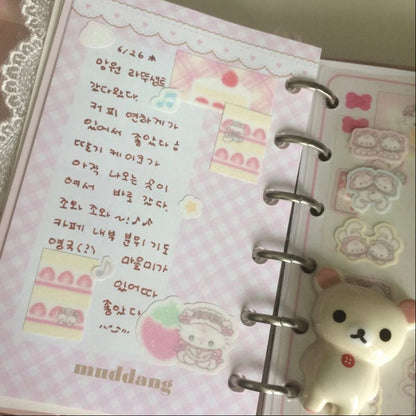 6/26 木
망원 라뚝셈트
갔다왔다.
커피 연하게가
있어서 좋았다
딸기 케이크가
아직 나오는 곳이
여서 바로 갔다.
조와 조와 ~!
카페 내부 분위기도
영국(?) 마을미가
있어따
좋았다
muddang